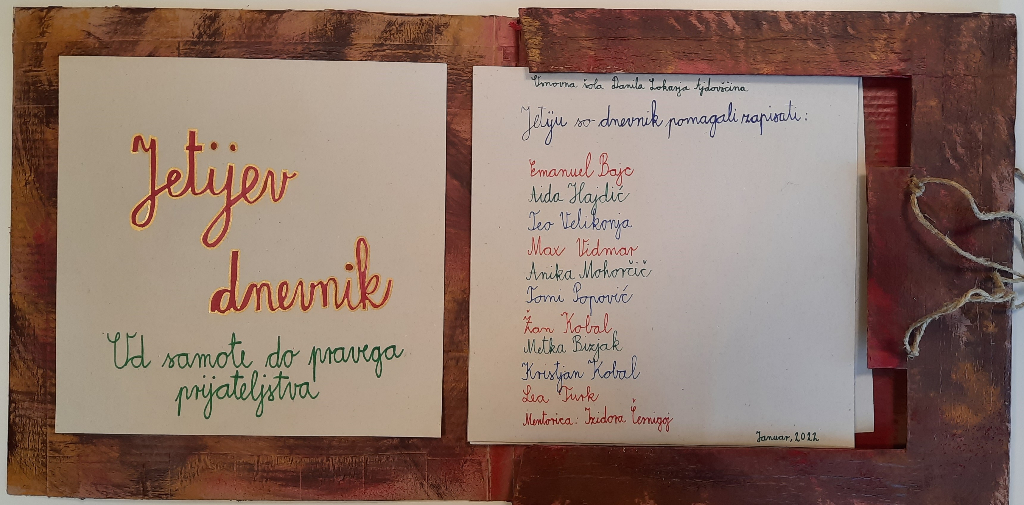 Jetijev
dnevnik
Od samote do pravega
prijateljstva
Osnovna šola Danila Lokarja Ajdovščina
Jetiju so dnevnik pomagali zapisati:
Emanuel Bajc
Aida Hajdić
Teo Velikonja
Max Vidmar
Anika Mohorčič
Tomi Popović
Žan Kobal
Metka Bizjak
Kristjan Kobal
Lea Turk
Mentorica: Izidora Černigoj
Januar, 2022